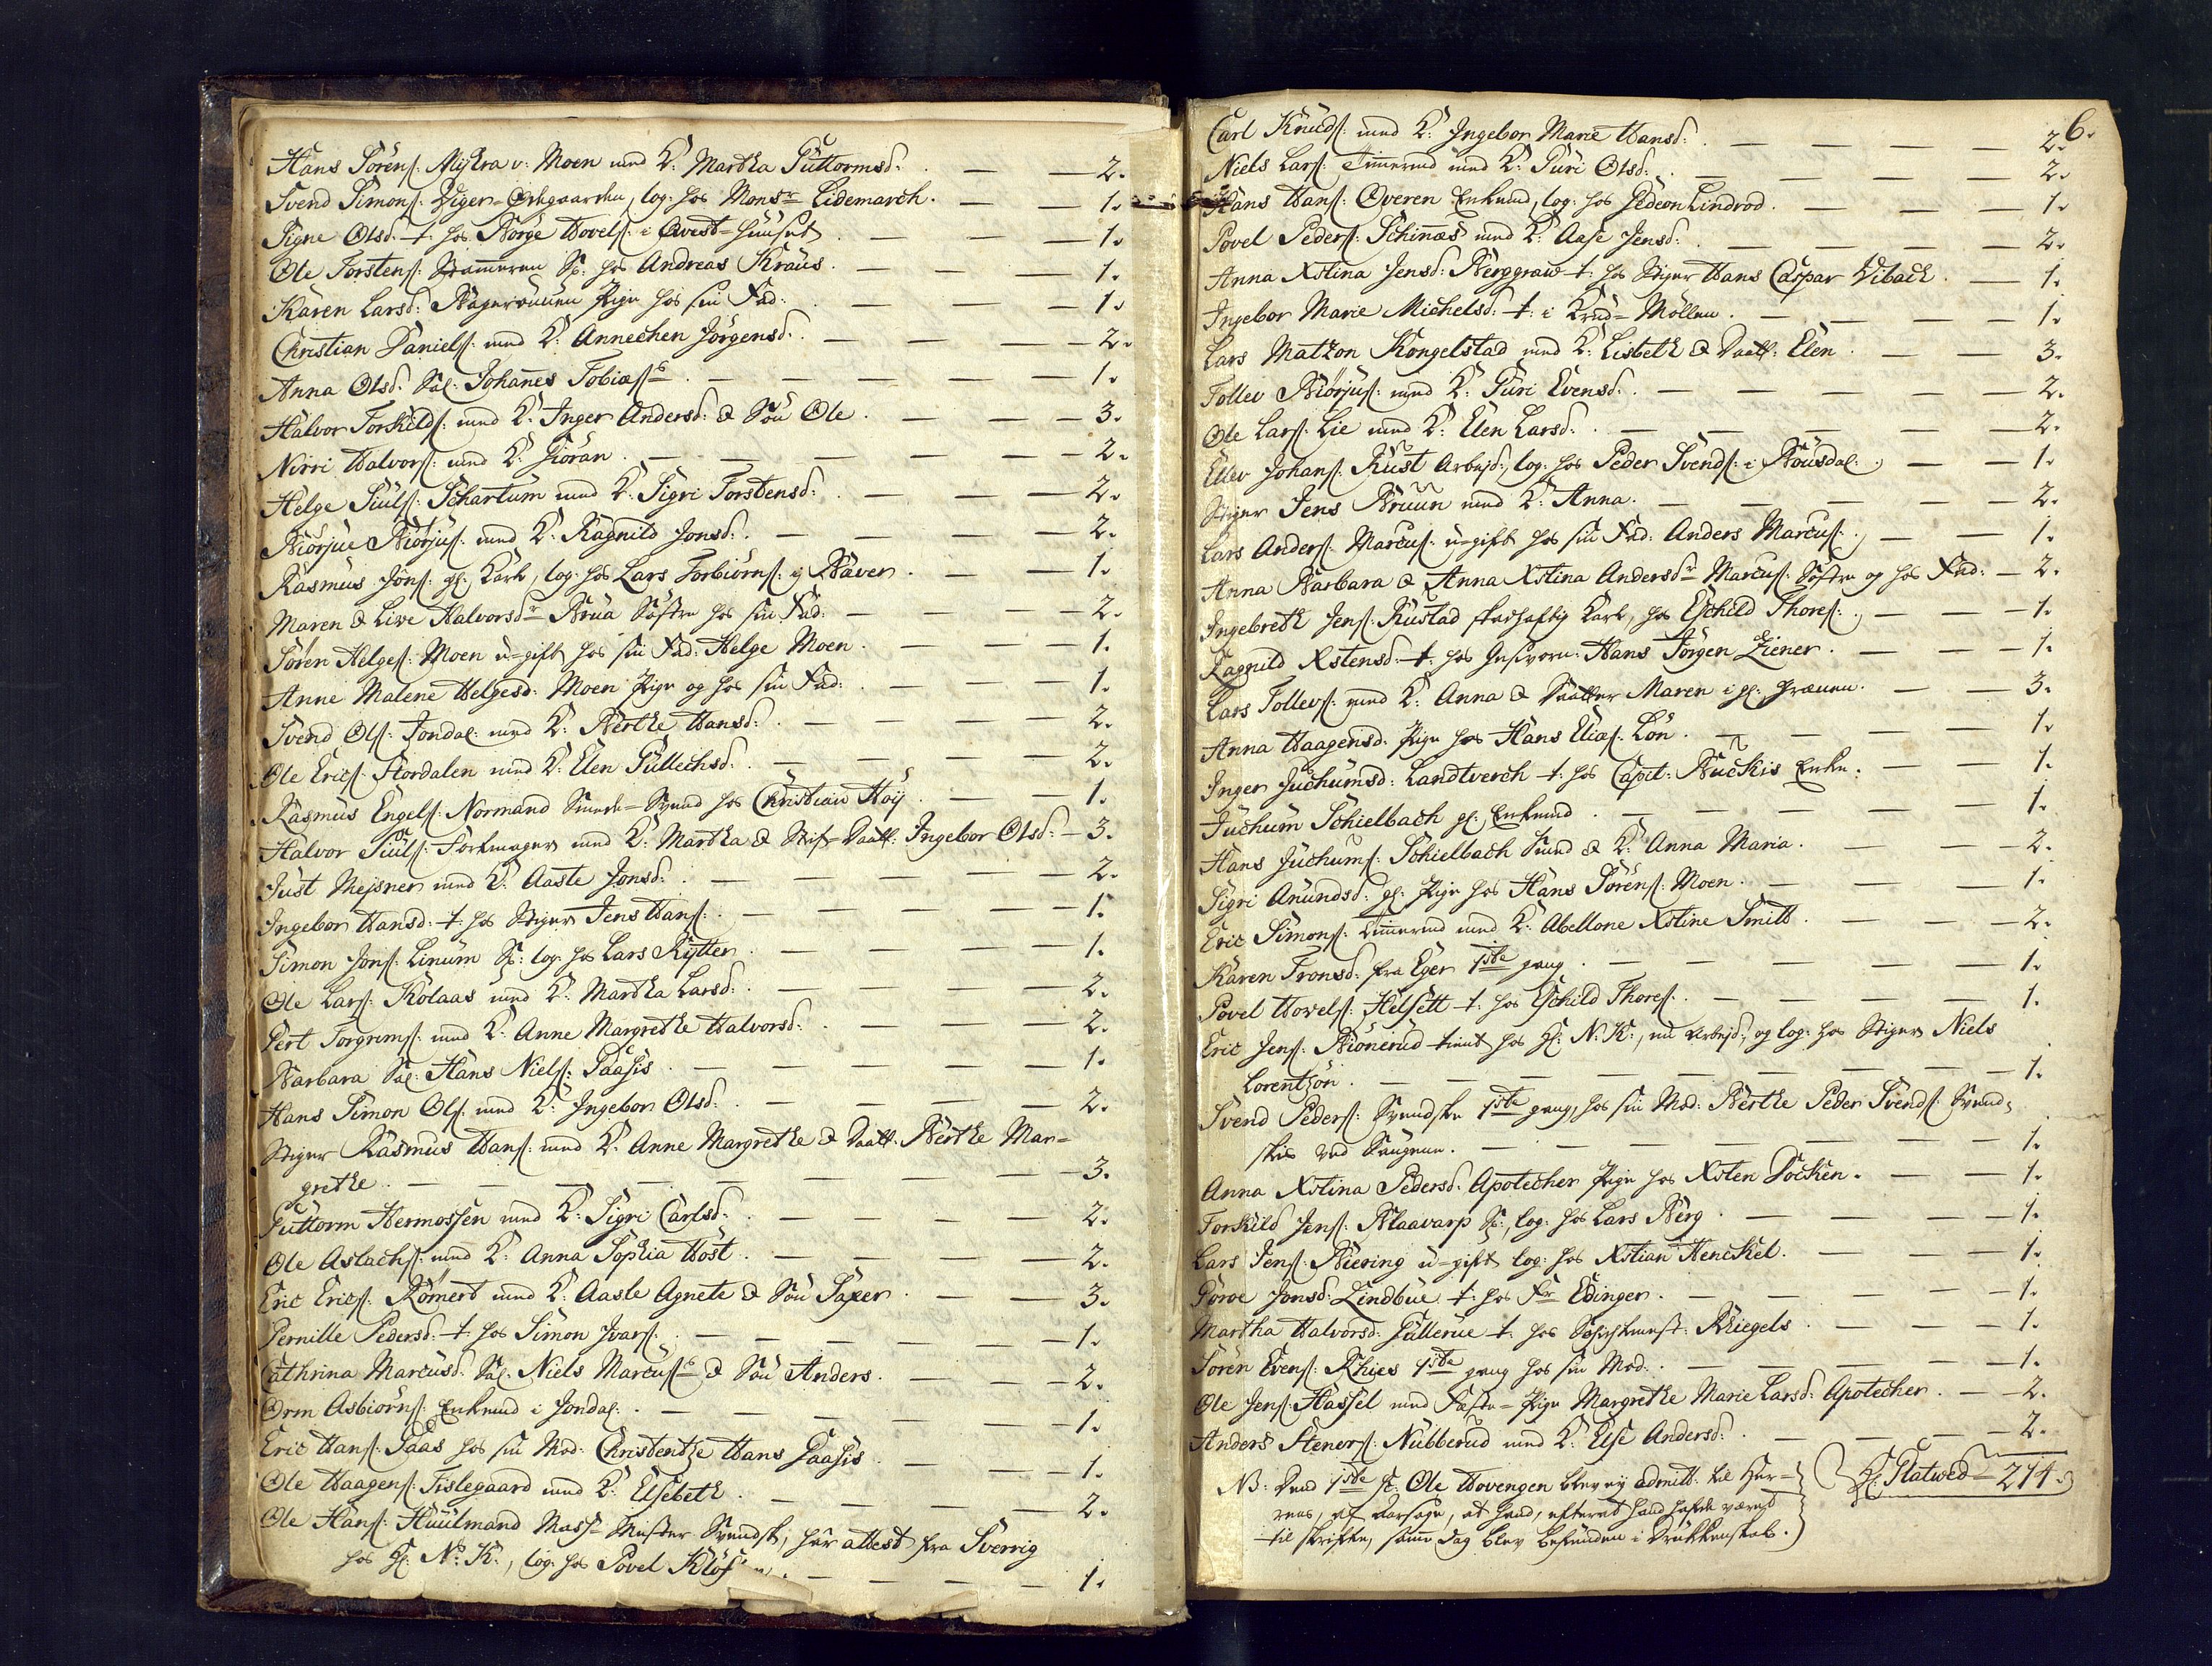 Hans Sörens: Myhra v: Moen med K: Martha Guttormsd: 2.
Svend Simons: Eger, log: hos Monsr Lidemarch. 1.
Signe Olsd: t: hos Börge Hovels: i Qvest-Huuset 1.
Ole Torstens: S: hos Andreas Kraus. 1.
Karen Larsd: Pige hos sin Fad: 1.
Christian Daniels: med K: Annechen Jörgensd: 2.
Anna Olsd: Sal: Johannes Tobiæs: 1.
Halvor Torkilds: med K: Inger Andersd: & Sön Ole. 3.
Nirri Halvors: med K: Giöran. 2.
Helge Siuls: Schartum med K: Sigri Torstensd: 2.
Biörjue Biörjus: med K: Ragnild Jonsd: 2.
Rasmus Jons: gl: Karl, log: hos Lars Torbiörns: i Baver. 1.
Maren & Live Halvorsdr Brua Söstre hos sin Fad: 2.
Sören Helges: Moen u-gift hos sin Fad: Helge Moen. 1.
Anne Malene Helgesd: Moen Pige og hos sin Fad: 1.
Svend Ols: Jondal: med K: Berthe Hansd: 2.
Ole Erics: Stordalen med K: Elen Gullechsd: 2.
Rasmus Engels: Normand Smede-Svend hos Christian Höy. 1.
Halvor Siuls: med K: Martha & Stif-Daatt: Ingebor Olsd: 3.
Just Mejsner med K: Aaste Jonsd: 2.
Ingebor Hansd: t: hos Stiger Jens Hans: 1.
Simon Jons: Linum S: log: hos Lars Rytter. 1.
Ole Lars: Kolaas med K: Martha Larsd: 2.
Pert Torgrims: med K: Anne Margrethe Halvorsd: 2.
Barbara Sal: Hans Niels: Gaasis 1.
Hans Simon Ols: med K: Ingebor Olsd: 2.
Stiger Rasmus Hans: med K: Anne Margrethe & Daatt: Berthe Mar=
grethe. 3.
Guttorm Hermossen med K: Sigri Carlsd: 2.
Ole Aslachs: med K: Anna Sophia Höst. 2.
Eric Erics: Römert med K: Aasle Agnete & Sön Casper. 3.
Pernille Pedersd: t: hos Simon Ivars: 1.
Cathrina Marcusd: Sal: Niels Marcus: & Sön Anders. 2.
Orm Asbiörns: Enkemd i Jondal: 1.
Eric Hans: Gaas hos sin Mod: Christentze Hans Gaasis 1.
Ole Haagens: Fislegaard med K: Elsebeth. 2.
Ole Hans: Huulmand Mass-Mester Svendsk, har attest fra Sverrig
hos H: N: K:, log: hos Povel Klös 1.
6.
Carl Knuds: med K: Ingebor Marie Hansd: 2.
Niels Lars: Timermd med K: Guri Olsd: 2.
Hans Hans: Overen Enkemd, log: hos Gedeon Lindrod. 1.
Povel Peders: Schinæs med K: Aase Jensd: 2.
Anna Xstina Jensd: Berggraw t: hos Stiger Hans Caspar Vibach. 1.
Ingebor Marie Michelsd: t: i Krud-Möllen. 1.
Lars Matzon Kongelstad med K: Lisbeth & Daatt: Elen. 3.
Tollev Biörjus: med K: Guri Evensd: 2.
Ole Lars: Lie med K: Elen Larsd: 2.
Ellev Johans: Rust Arbejd:, log: hos Peder Svends: i Bousdal: 1.
Stiger Jens Bruun med K: Anna. 2.
Lars Anders: Marcus: u-gift hos sin Fad: Anders Marcus: 1.
Anna Barbara & Anna Xstina Andersdr Marcus: Söstre og hos Fad: 2.
Ingebreth Jens: Rustad Karl, hos Eschild Thores: 1.
Ragnild Xstensd: t: hos Gesvorn: Hans Jörgen Ziener. 1.
Lars Tollevs: med K: Anna & Daatter Maren i gl: 3.
Anna Haagensd: Pige hos Hans Elias: Lön. 1.
Inger Juchumsd: Landtverch t: hos Capit: Buckis Enke. 1.
Juchum Schielbach gl: Enkemd 1.
Hans Juchums: Schielbach Smed & K: Anna Maria. 2.
Sigri Amundsd: gl: Pige hos Hans Sörens: Moen. 1.
Eric Simons: Timermd med K: Abellone Xstine Smitt. 2.
Karen Tronsd: fra Eger 1ste gang. 1.
Povel Hovels: Helsett t: hos Eschild Thores: 1.
Eric Jens: Biönerud tient hos H: N: K:, nu Arbejd:, og log: hos Stiger Niels
Lorentzön. 1.
Svend Peders: Svendske 1ste gang, hos sin Mod: Berthe Peder Svends: Svend=
skes ved 1.
Anna Xstina Pedersd: Apotecher Pige hos Xsten Docken. 1.
Torkild Jens: Blaavarp S:, log: hos Lars Berg. 1.
Lars Jens: Biering u-gift log: hos Xstian Henckel. 1.
Gorve Jonsd: Lindbue t: hos Fr Edinger. 1.
Martha Halvorsd: Gullerue t: hos Schichtmest: Bhiegels. 1.
Sören Evens: Khies 1ste gang hos sin Mod: 1.
Ole Jens: Hassel med Fæste-Pige Margrethe Marie Larsd: Apotecher. 2.
Anders Steners: Nubberud med K: Else Andersd: 2.
H: Platwed 214.
NB: Ole Hovengen blev ej admitt: til Her-
rens, af Aarsage, at hand, efterat hand hafde været
til skrifte, samme dag blev befunden i Drukkenskab.